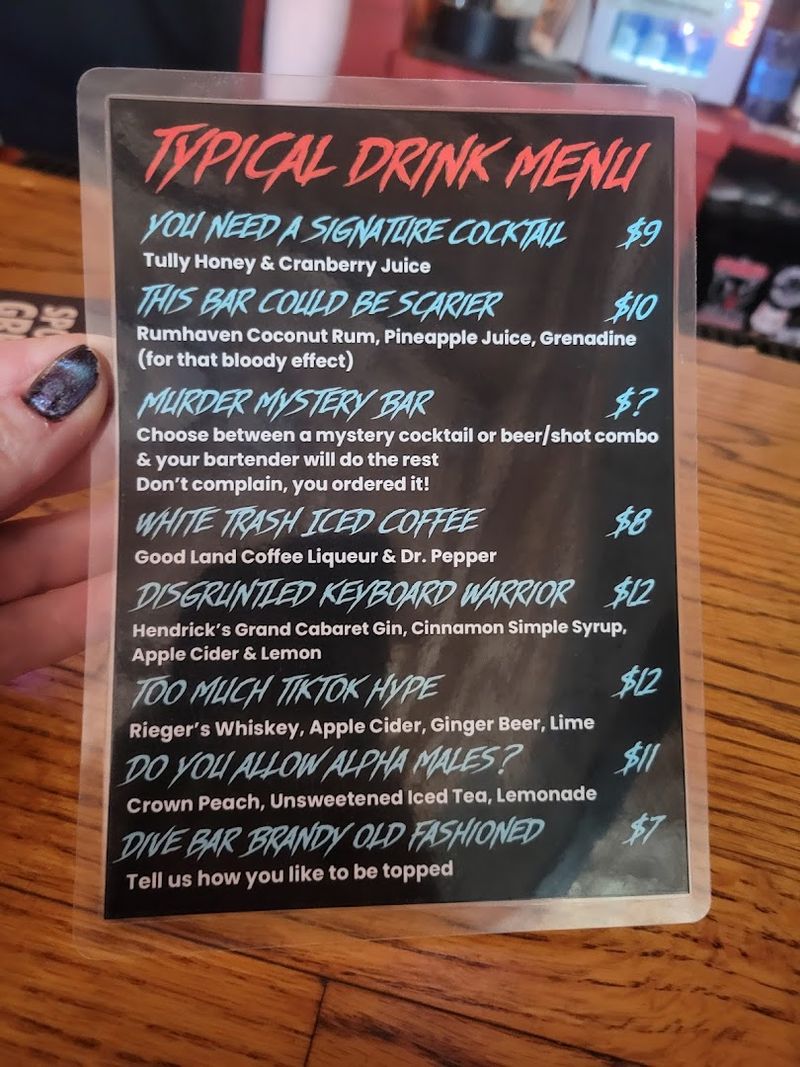 TYPICAL DRINK MENU
YOU NEED A SIGNATURE COCKTAIL $9
Tully Honey & Cranberry Juice
THIS BAR COULD BE SCARIER $10
Rumhaven Coconut Rum, Pineapple Juice, Grenadine
(for that bloody effect)
MURDER MYSTERY BAR $?
Choose between a mystery cocktail or beer/shot combo
& your bartender will do the rest
Don't complain, you ordered it!
WHITE TRASH ICED COFFEE $8
Good Land Coffee Liqueur & Dr. Pepper
DISGRUNTLED KEYBOARD WARRIOR $12
Hendrick's Grand Cabaret Gin, Cinnamon Simple Syrup,
Apple Cider & Lemon
TOO MUCH TIKTOK HYPE $12
Rieger's Whiskey, Apple Cider, Ginger Beer, Lime
DO YOU ALLOW ALPHA MALES? $11
Crown Peach, Unsweetened Iced Tea, Lemonade
DIVE BAR BRANDY OLD FASHIONED $7
Tell us how you like to be topped